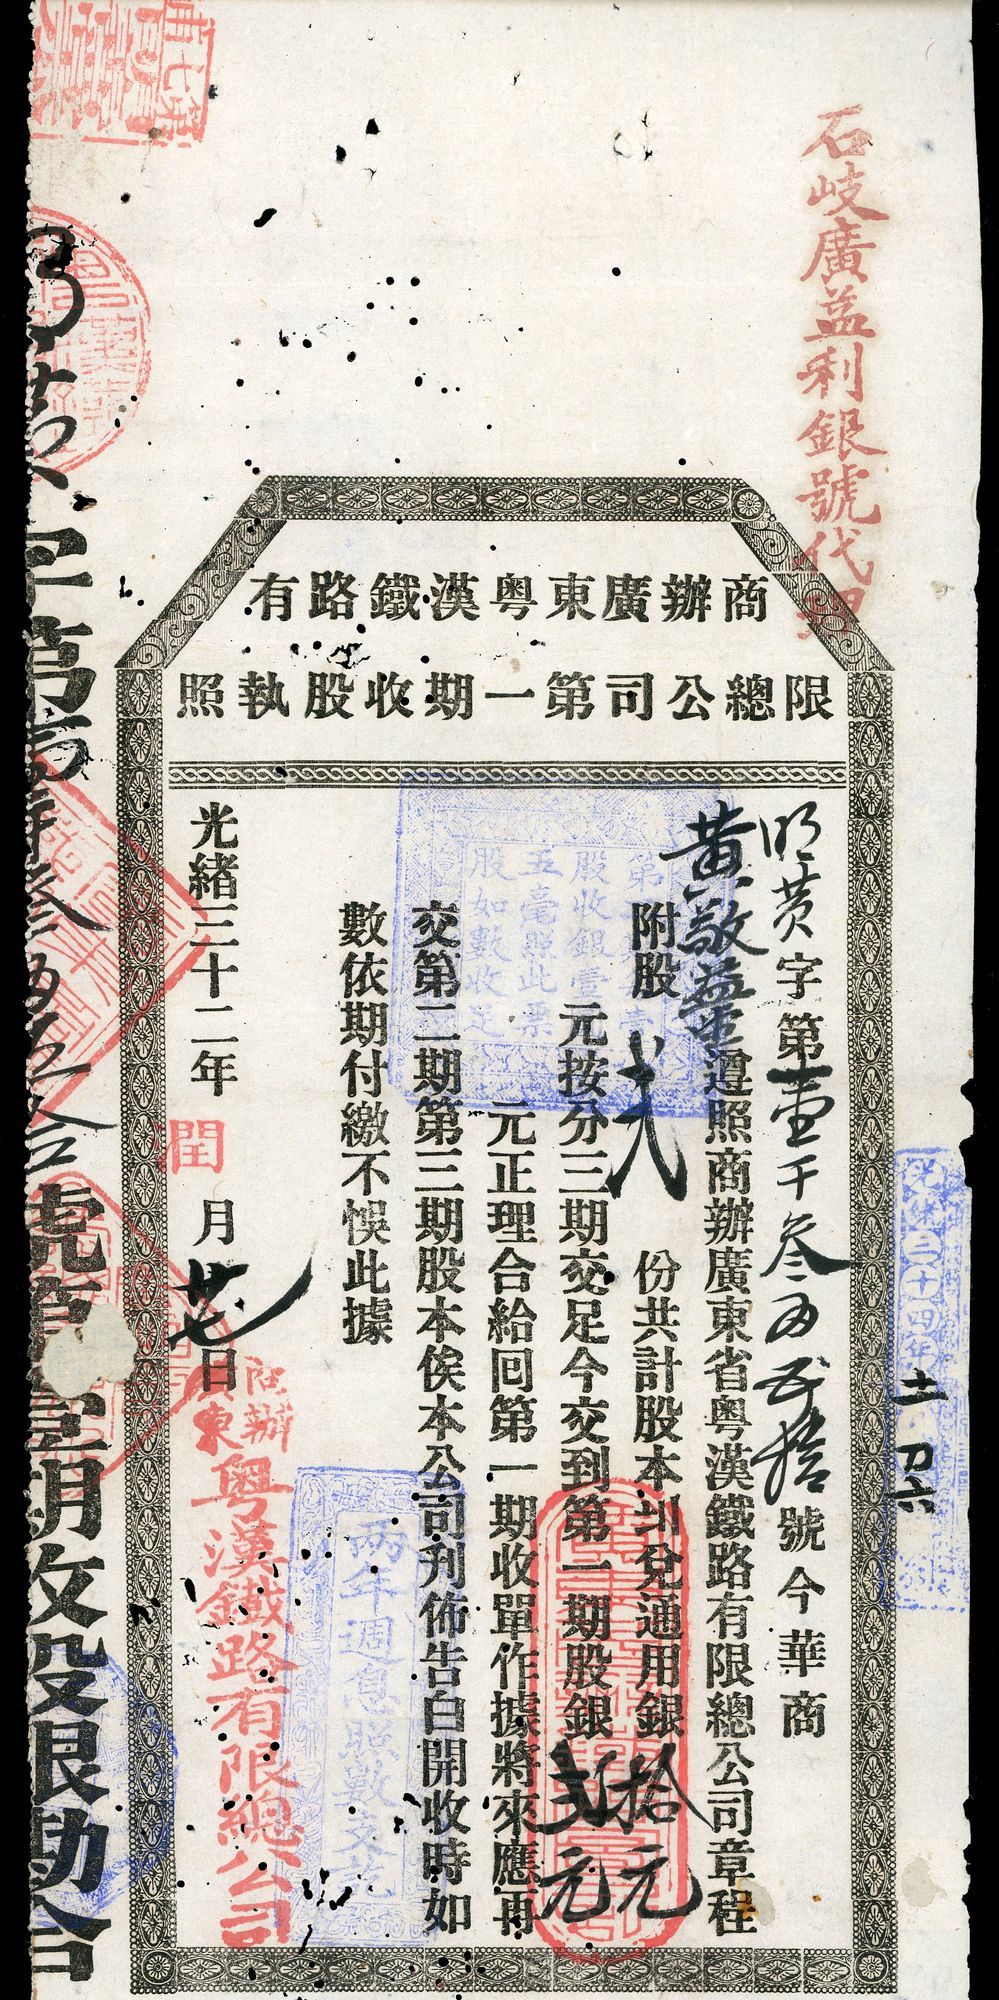 石岐廣益利銀號代理
商辦廣東粵漢鐵路有
限總公司第一期收股執照
明黄字第壹千叁百五拾號今華商
黃敬業遵照商辦廣東省粵漢鐵路有限總公司章程
附股弍份共計股本圳兌通用銀拾元
元按分三期交足今交到第一期股銀弍元
元正理合給回第一期收單作據將來應再
交第二期第三期股本俟本公司刋佈告白開收時如
數依期付繳不悞此據
光緒三十二年閏月廿七日
商辦廣東粵漢鐵路有限總公司
股收銀壹
五毫照此票
股如數收足
兩年週息照數交訖
光緒三十四年十一月六
字第
號第壹期收股銀勘合